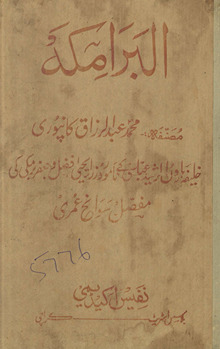 البرامکہ
مصنفہ: محمد عبدالرزاق کانپوری
خلیفہ ہارون الرشید عباسی کے نامور وزرا یحییٰ فضل و جعفر برمکی کی
مفصل سوانح عمری
5776
نفیس اکیڈیمی
کراچی